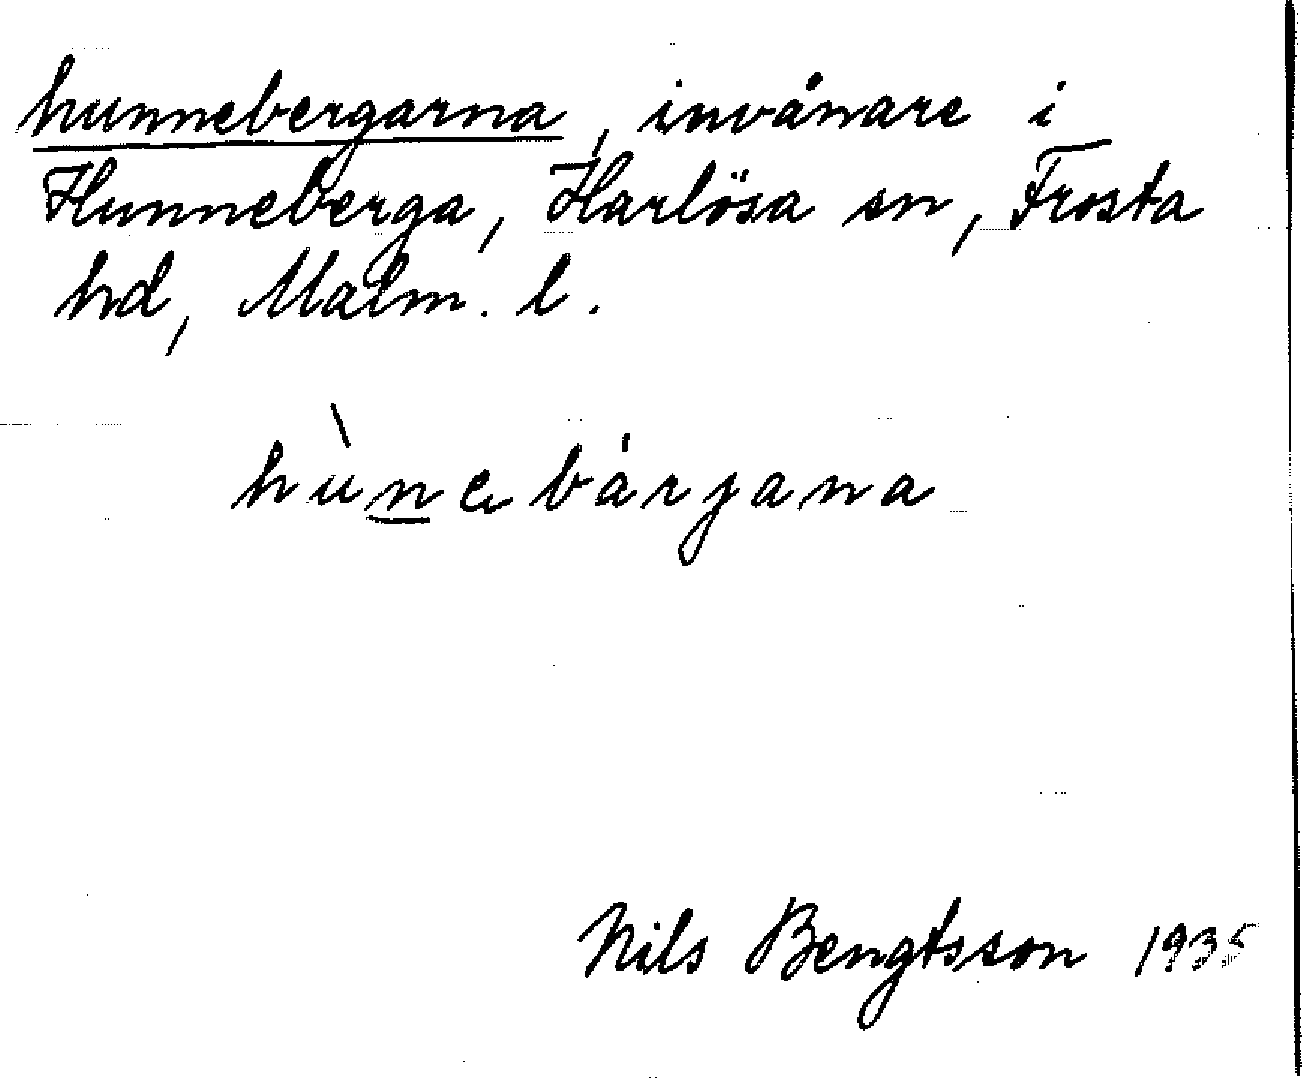 hunnebergarna, invånare i
Hunneberga, Harlösa sn, Frosta
hd, Malm. l.
hùnebárjana
Nils Bengtsson 1935